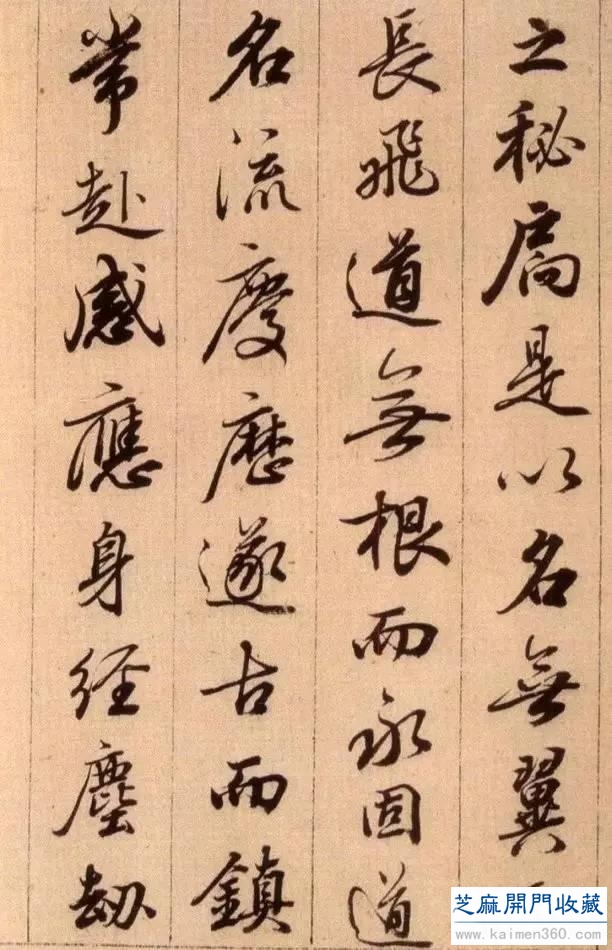 之秘扃是以名無翼
長飛道無根而永固道
名流慶歷遂古而鎮
常赴感應身經塵劫
芝麻開門收藏
www.kaimen360.com